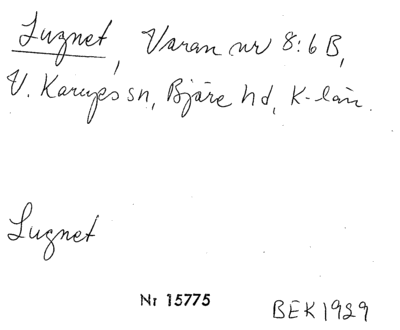 Lugnet, Varan nr 8:6B,
V. Karups sn, Bjäre hd, K-län.
Lugnet
Nr 15775
BEK 1929